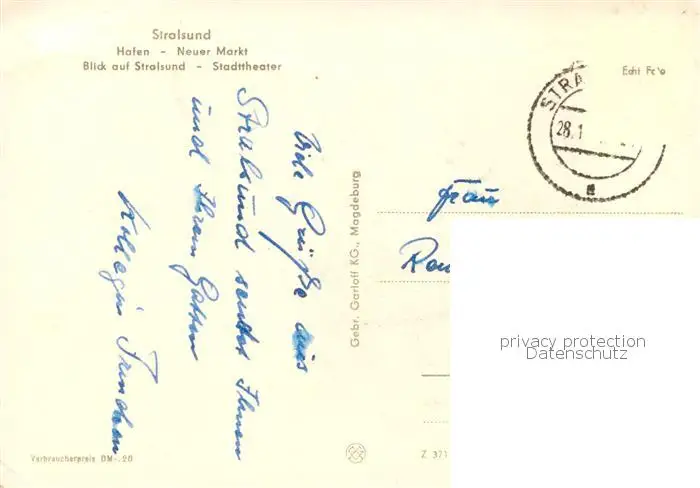 Stralsund
Hafen – Neuer Markt
Blick auf Stralsund – Stadttheater
Viele Grüße aus
Stralsund sendet Ihnen
und Ihrem Gatten
Kollegin
Gebr. Garloff KG., Magdeburg
Verbraucherpreis DM -.20
Echt Foto
STRA
28.1
a
Frau
privacy protection
Datenschutz
Z 371